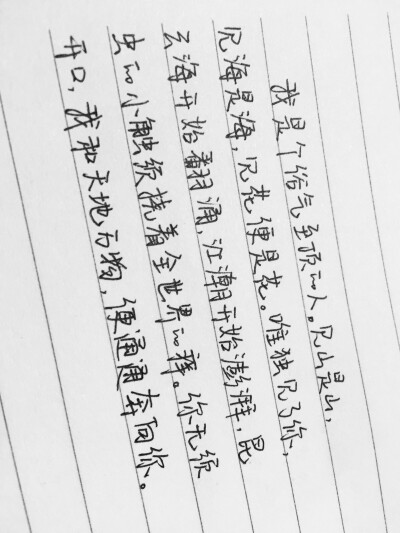 我是个俗气至顶的人。见山是山,
见海是海,见花便是花。唯独见了你,
云海开始翻涌,江潮开始澎湃,昆
虫的小触须挠着全世界的痒。你无须
开口,我和天地万物,便通通奔向你。